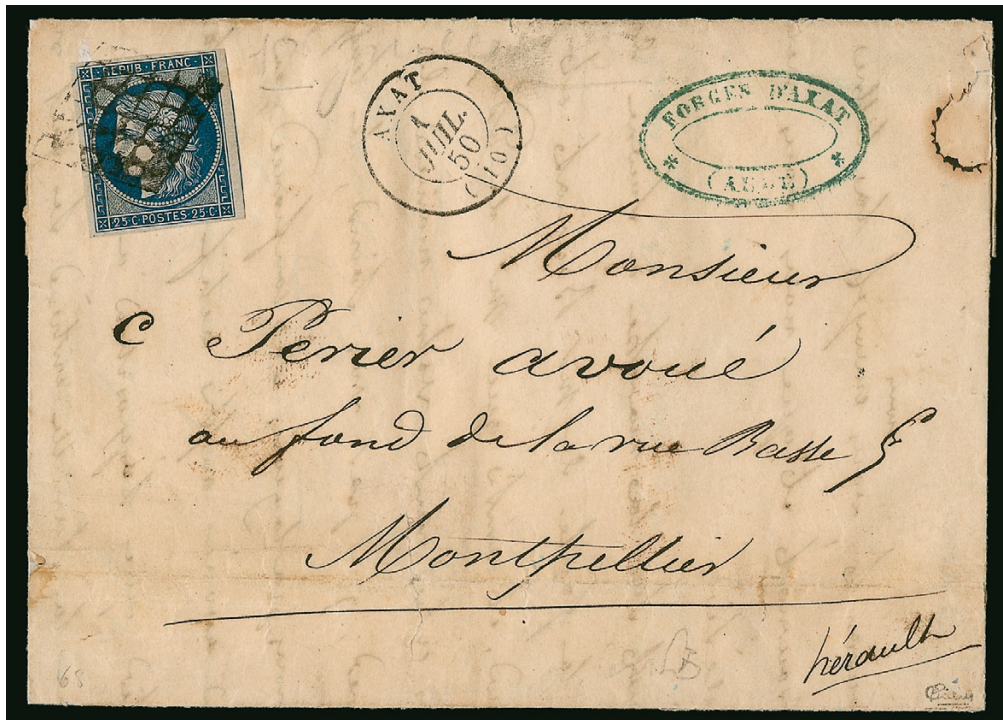 REPUB·FRANC·
25·C·POSTES·25·C·
AXAT
1
JUIL.
50
(10)
FORGES D'AXAT
* *
(AUDE)
Monsieur
C Perier avoué
au fond de la rue Basse
Montpellier
hérault